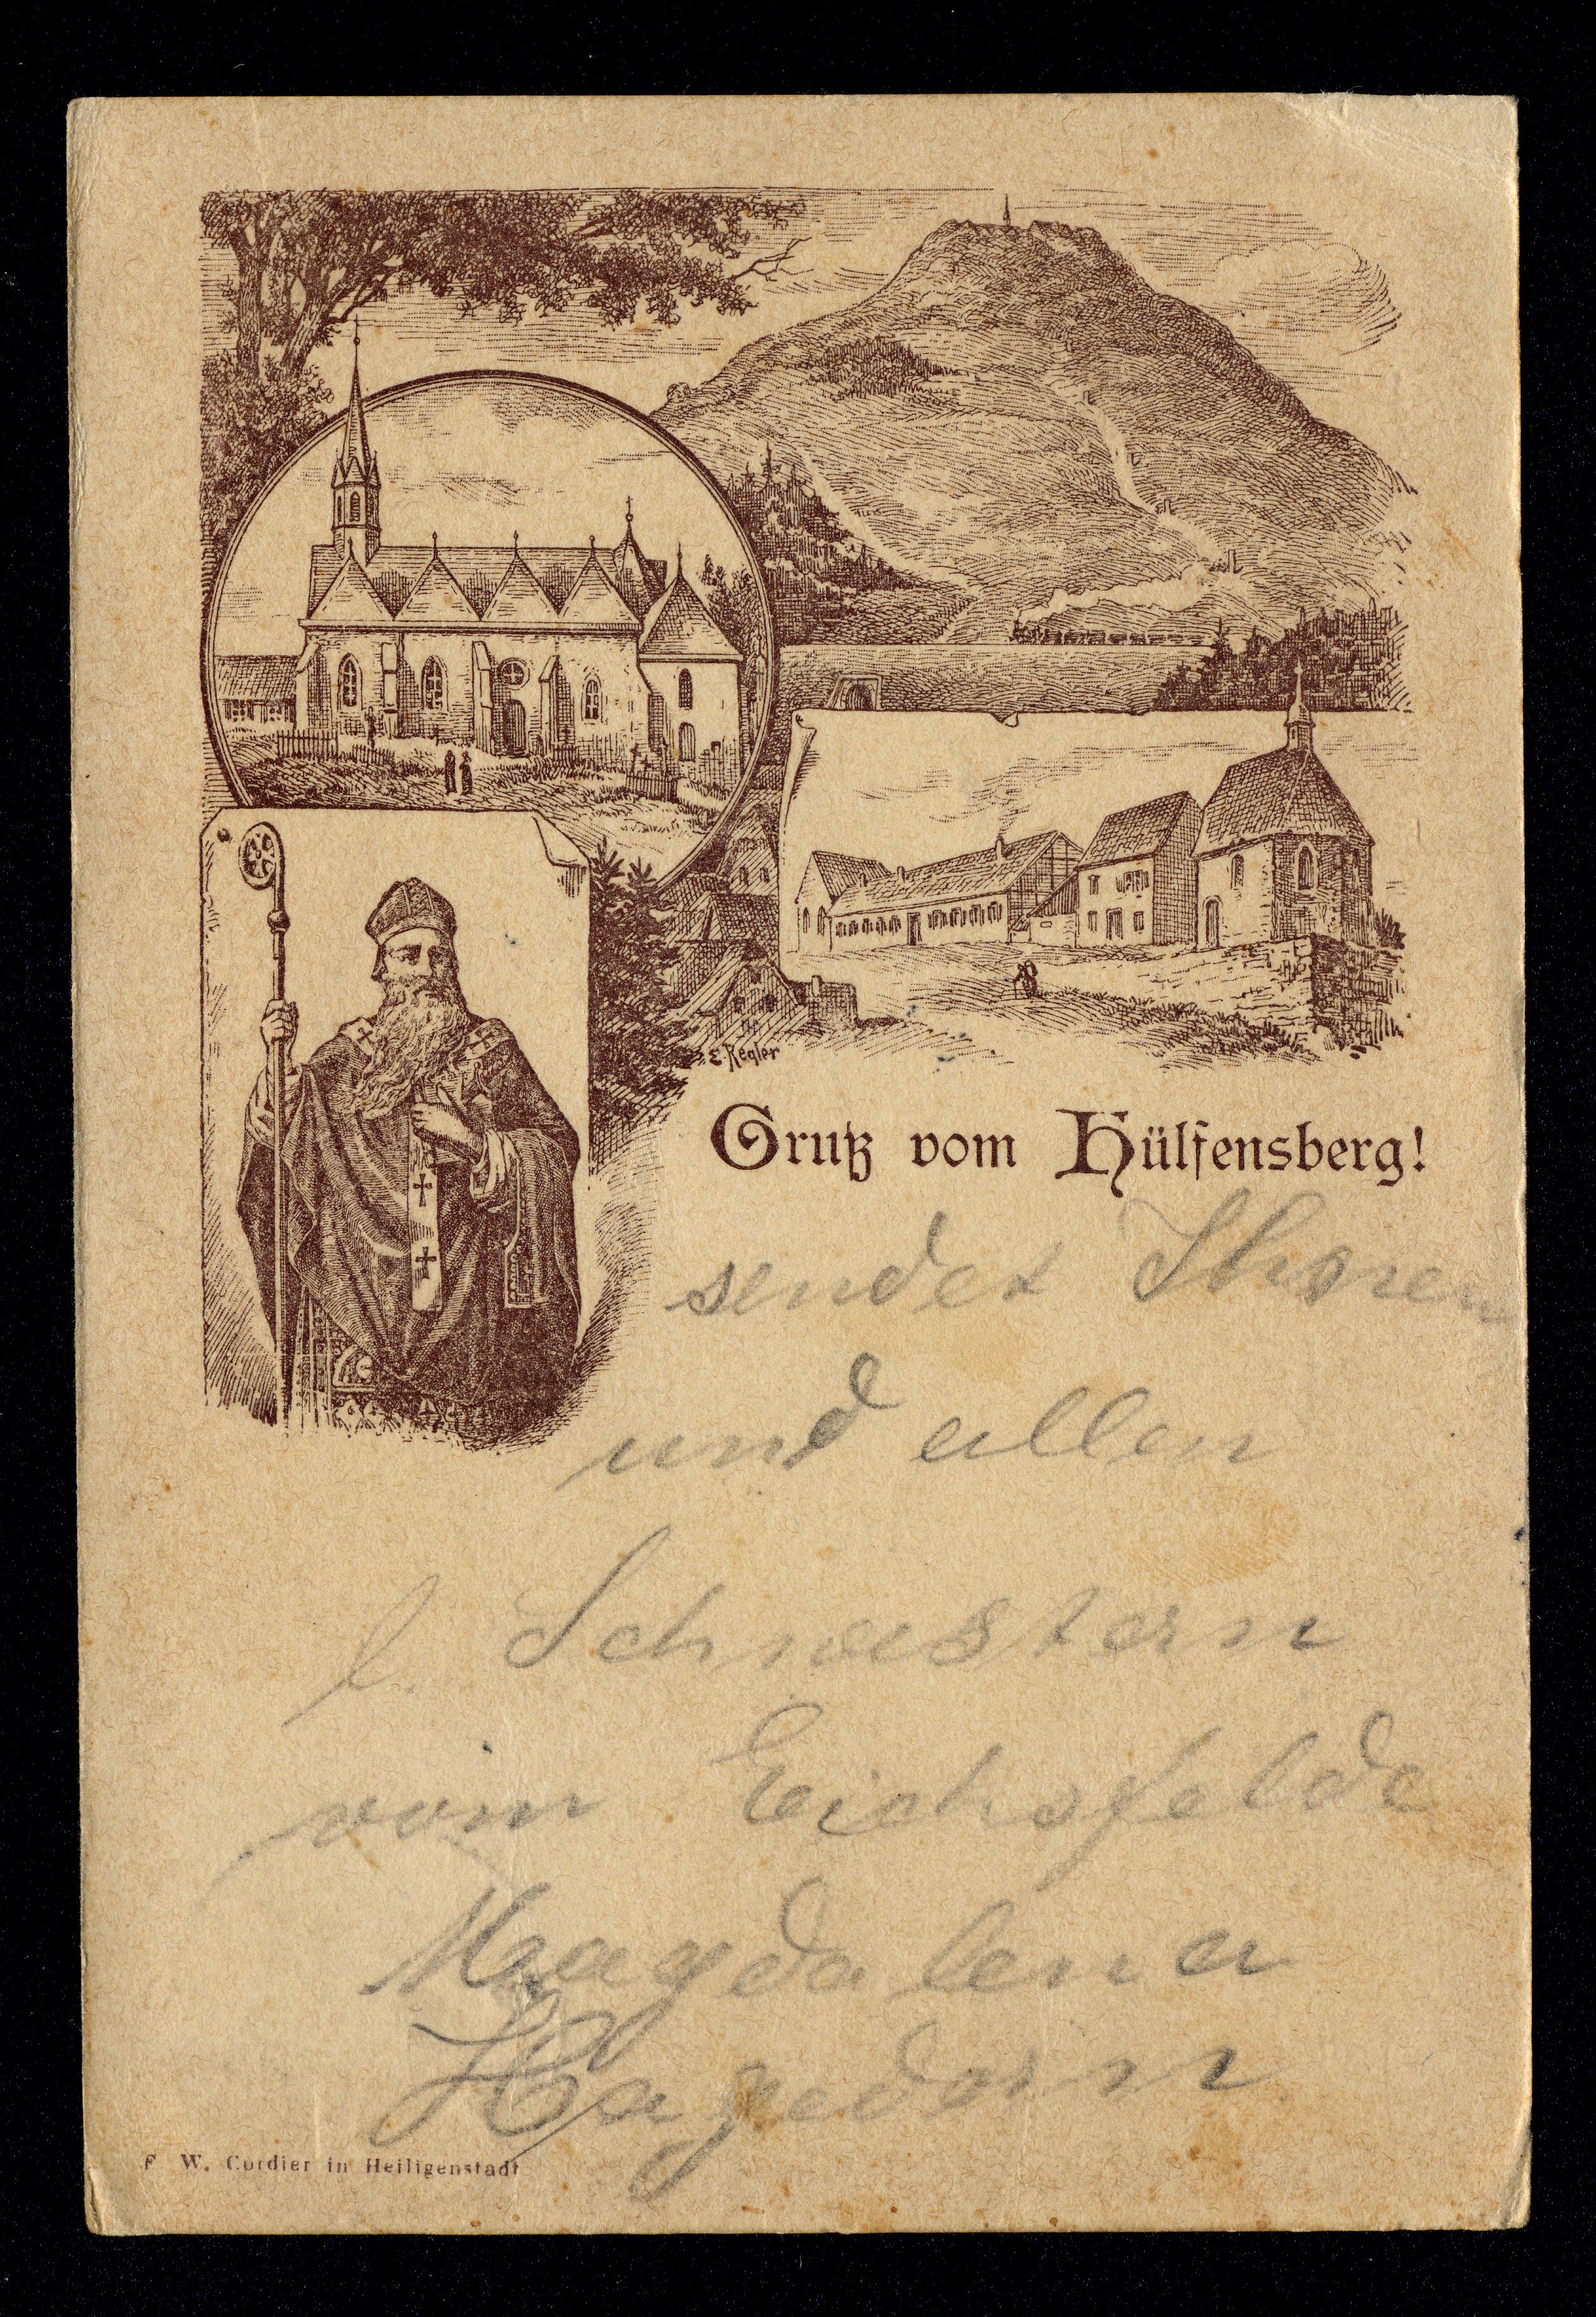 E. Regler
Gruß vom Hülfensberg!
sendet Ihnen
und allen
l. Schwestern
vom Eichsfelde
Magdalena
Hagedorn
F. W. Cordier in Heiligenstadt